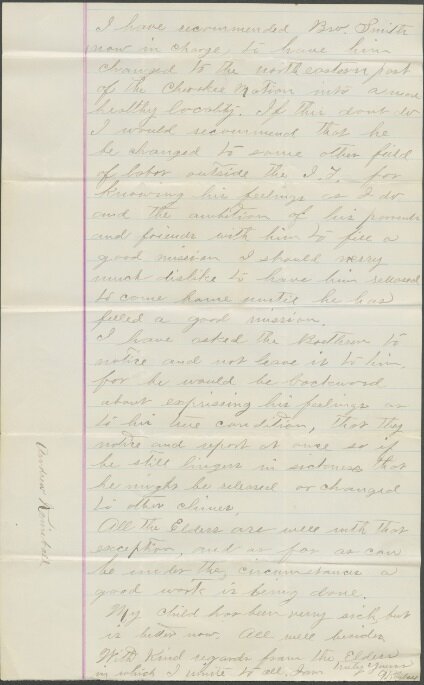 I have recommended Bro. Smith
now in charge, to have him
changed to the north eastern part
of the Cherokee Nation into a more
healthy locality. If this dont do
I would recommend that he
be changed to some other field
of labor outside the I.T. for
knowing his feelings as I do
and the ambition of his parents
and friends with him to fill a
good mission I should very
much dislike to have him released
to come home until he has
filled a good mission.
I have asked the Brethren to
notice and not leave it to him,
for he would be backward
about expressing his feelings as
to his true condition, that they
notice and report at once so if
he still lingers in sickness that
he might be released or changed
to other climes.
All the Elders are well with that
exception, and as far as can
be under the circumstances a
good work is being done.
My child has been very sick but
is better now. All well besides
With kind regards from the Elders
in which I unite to all, I am
Truly Yours
Andrew Kimball